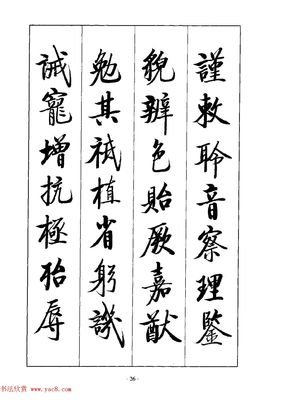 謹敕聆音察理鑒
貌辨色貽厥嘉猷
勉其祗植省躬譏
誡寵增抗極殆辱
· 26 ·
书法欣赏
www.yac8.com